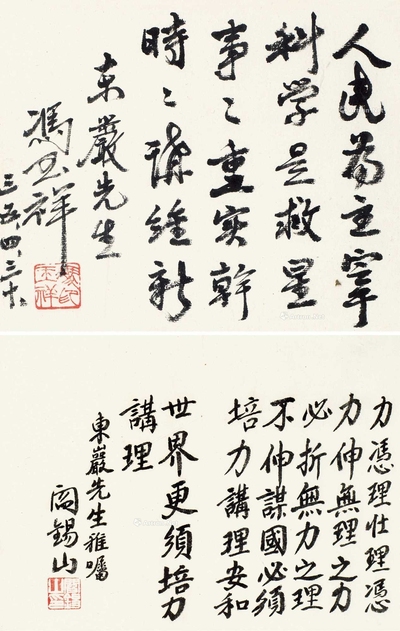 人民為主宰
科學是救星
事〻重實幹
時〻謀維新
东嚴先生
馮玉祥
三五、四、三十、
馮印玉祥
力憑理壯理憑
力伸無理之力
必折無力之理
不伸謀國必須
培力講理安和
世界更須培力
講理
東巖先生雅囑
閻錫山